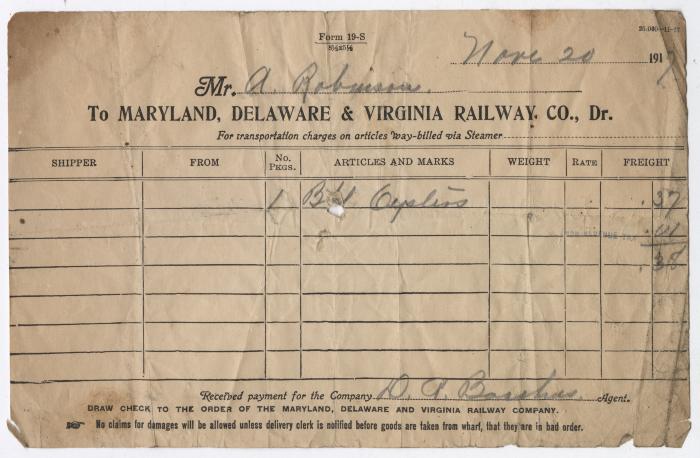 Form 19-S
8½x5½
Nov. 20 1917
Mr. A. Robinson.
To MARYLAND, DELAWARE & VIRGINIA RAILWAY. CO., Dr.
For transportation charges on articles way-billed via Steamer
SHIPPER FROM No. PKGS. ARTICLES AND MARKS WEIGHT RATE FREIGHT
1 Bbl Oysters .37
.01
.38
Received payment for the Company D. P. Agent.
DRAW CHECK TO THE ORDER OF THE MARYLAND, DELAWARE AND VIRGINIA RAILWAY COMPANY.
No claims for damages will be allowed unless delivery clerk is notified before goods are taken from wharf, that they are in bad order.